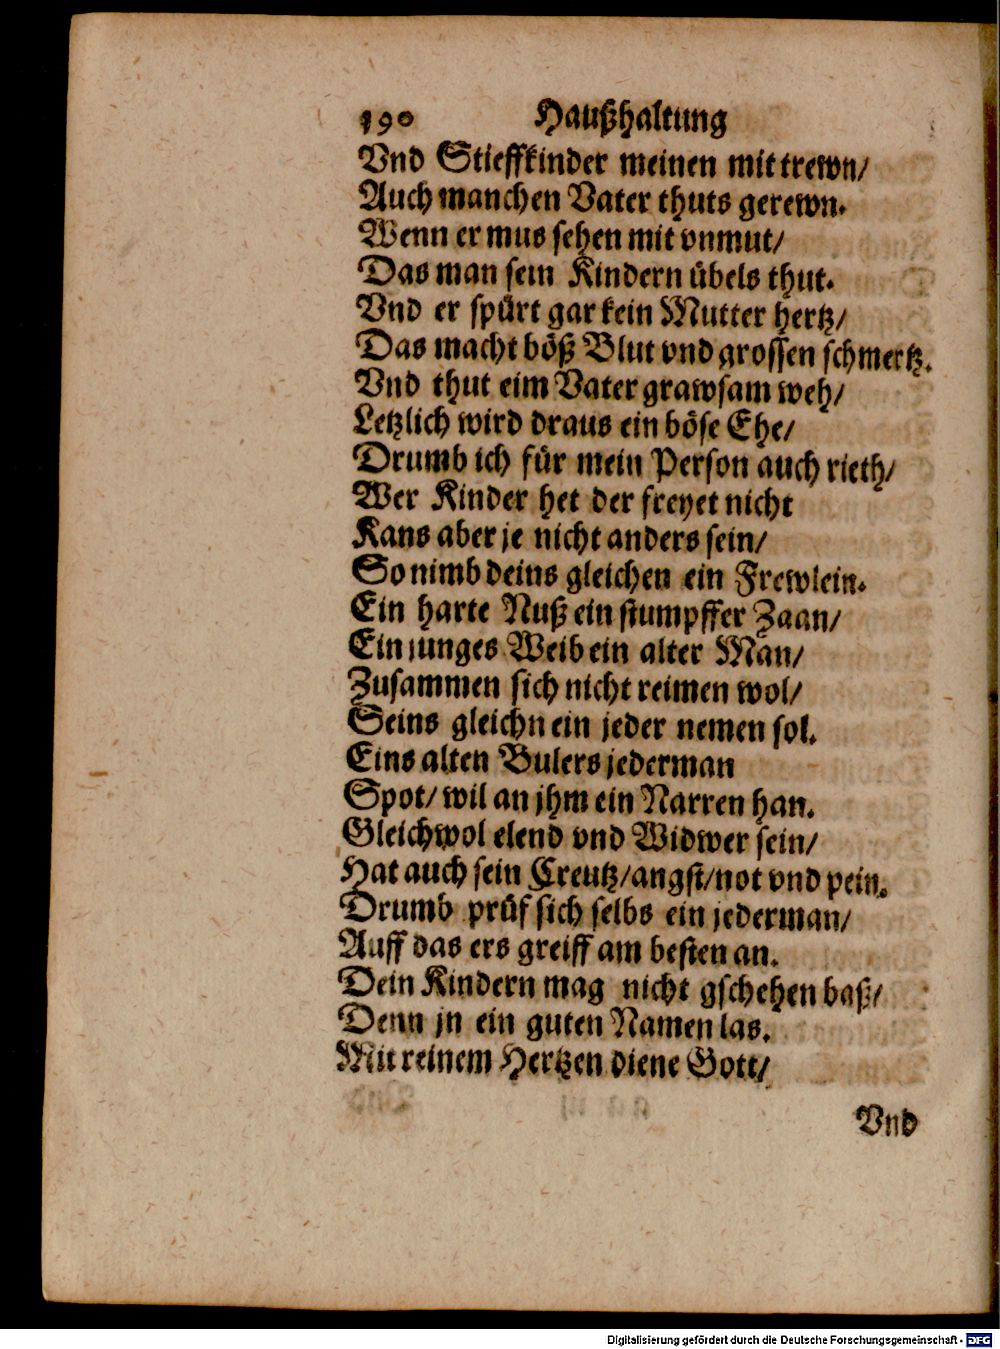 190 Haußhaltung
Vnd Stieffkinder meinen mit trewn/
Auch manchen Vater thuts gerewn.
Wenn er mus sehen mit vnmut/
Das man sein Kindern übels thut.
Vnd er spürt gar kein Mutter hertz/
Das macht böß Blut vnd grossen schmertz.
Vnd thut eim Vater grawsam weh/
Letzlich wird draus ein böse Ehe/
Drumb ich für mein Person auch rieth/
Wer Kinder het der freyet nicht
Kans aber je nicht anders sein/
So nimb deins gleichen ein Frewlein.
Ein harte Nuß ein stumpffer Zaan/
Ein junges Weib ein alter Man/
Zusammen sich nicht reimen wol/
Seins gleichn ein jeder nemen sol.
Eins alten Bulers jederman
Spot/ wil an jhm ein Narren han.
Gleichwol elend vnd Widwer sein/
Hat auch sein Creutz/angst/not vnd pein.
Drumb prüf sich selbs ein jederman/
Auff das ers greiff am besten an.
Dein Kindern mag nicht gschehen baß/
Denn jn ein guten Namen las.
Mit reinem Hertzen diene Gott/
Vnd
Digitalisierung gefördert durch die Deutsche Forschungsgemeinschaft - DFG